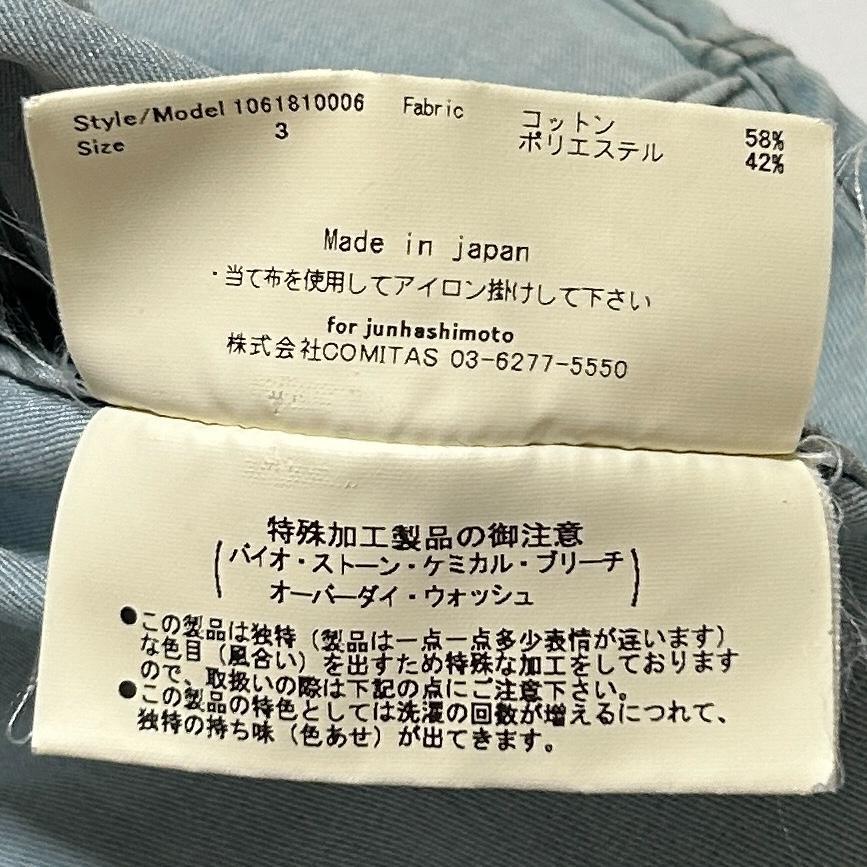 Style/Model 1061810006 Fabric コットン 58%
Size 3 ポリエステル 42%
Made in japan
・当て布を使用してアイロン掛けして下さい
for junhashimoto
株式会社COMITAS 03-6277-5550
特殊加工製品の御注意
(バイオ・ストーン・ケミカル・ブリーチ
オーバーダイ・ウォッシュ)
●この製品は独特（製品は一点一点多少表情が違います）
な色目（風合い）を出すため特殊な加工をしております
ので、取扱いの際は下記の点にご注意下さい。
●この製品の特色としては洗濯の回数が増えるにつれて、
独特の持ち味（色あせ）が出てきます。